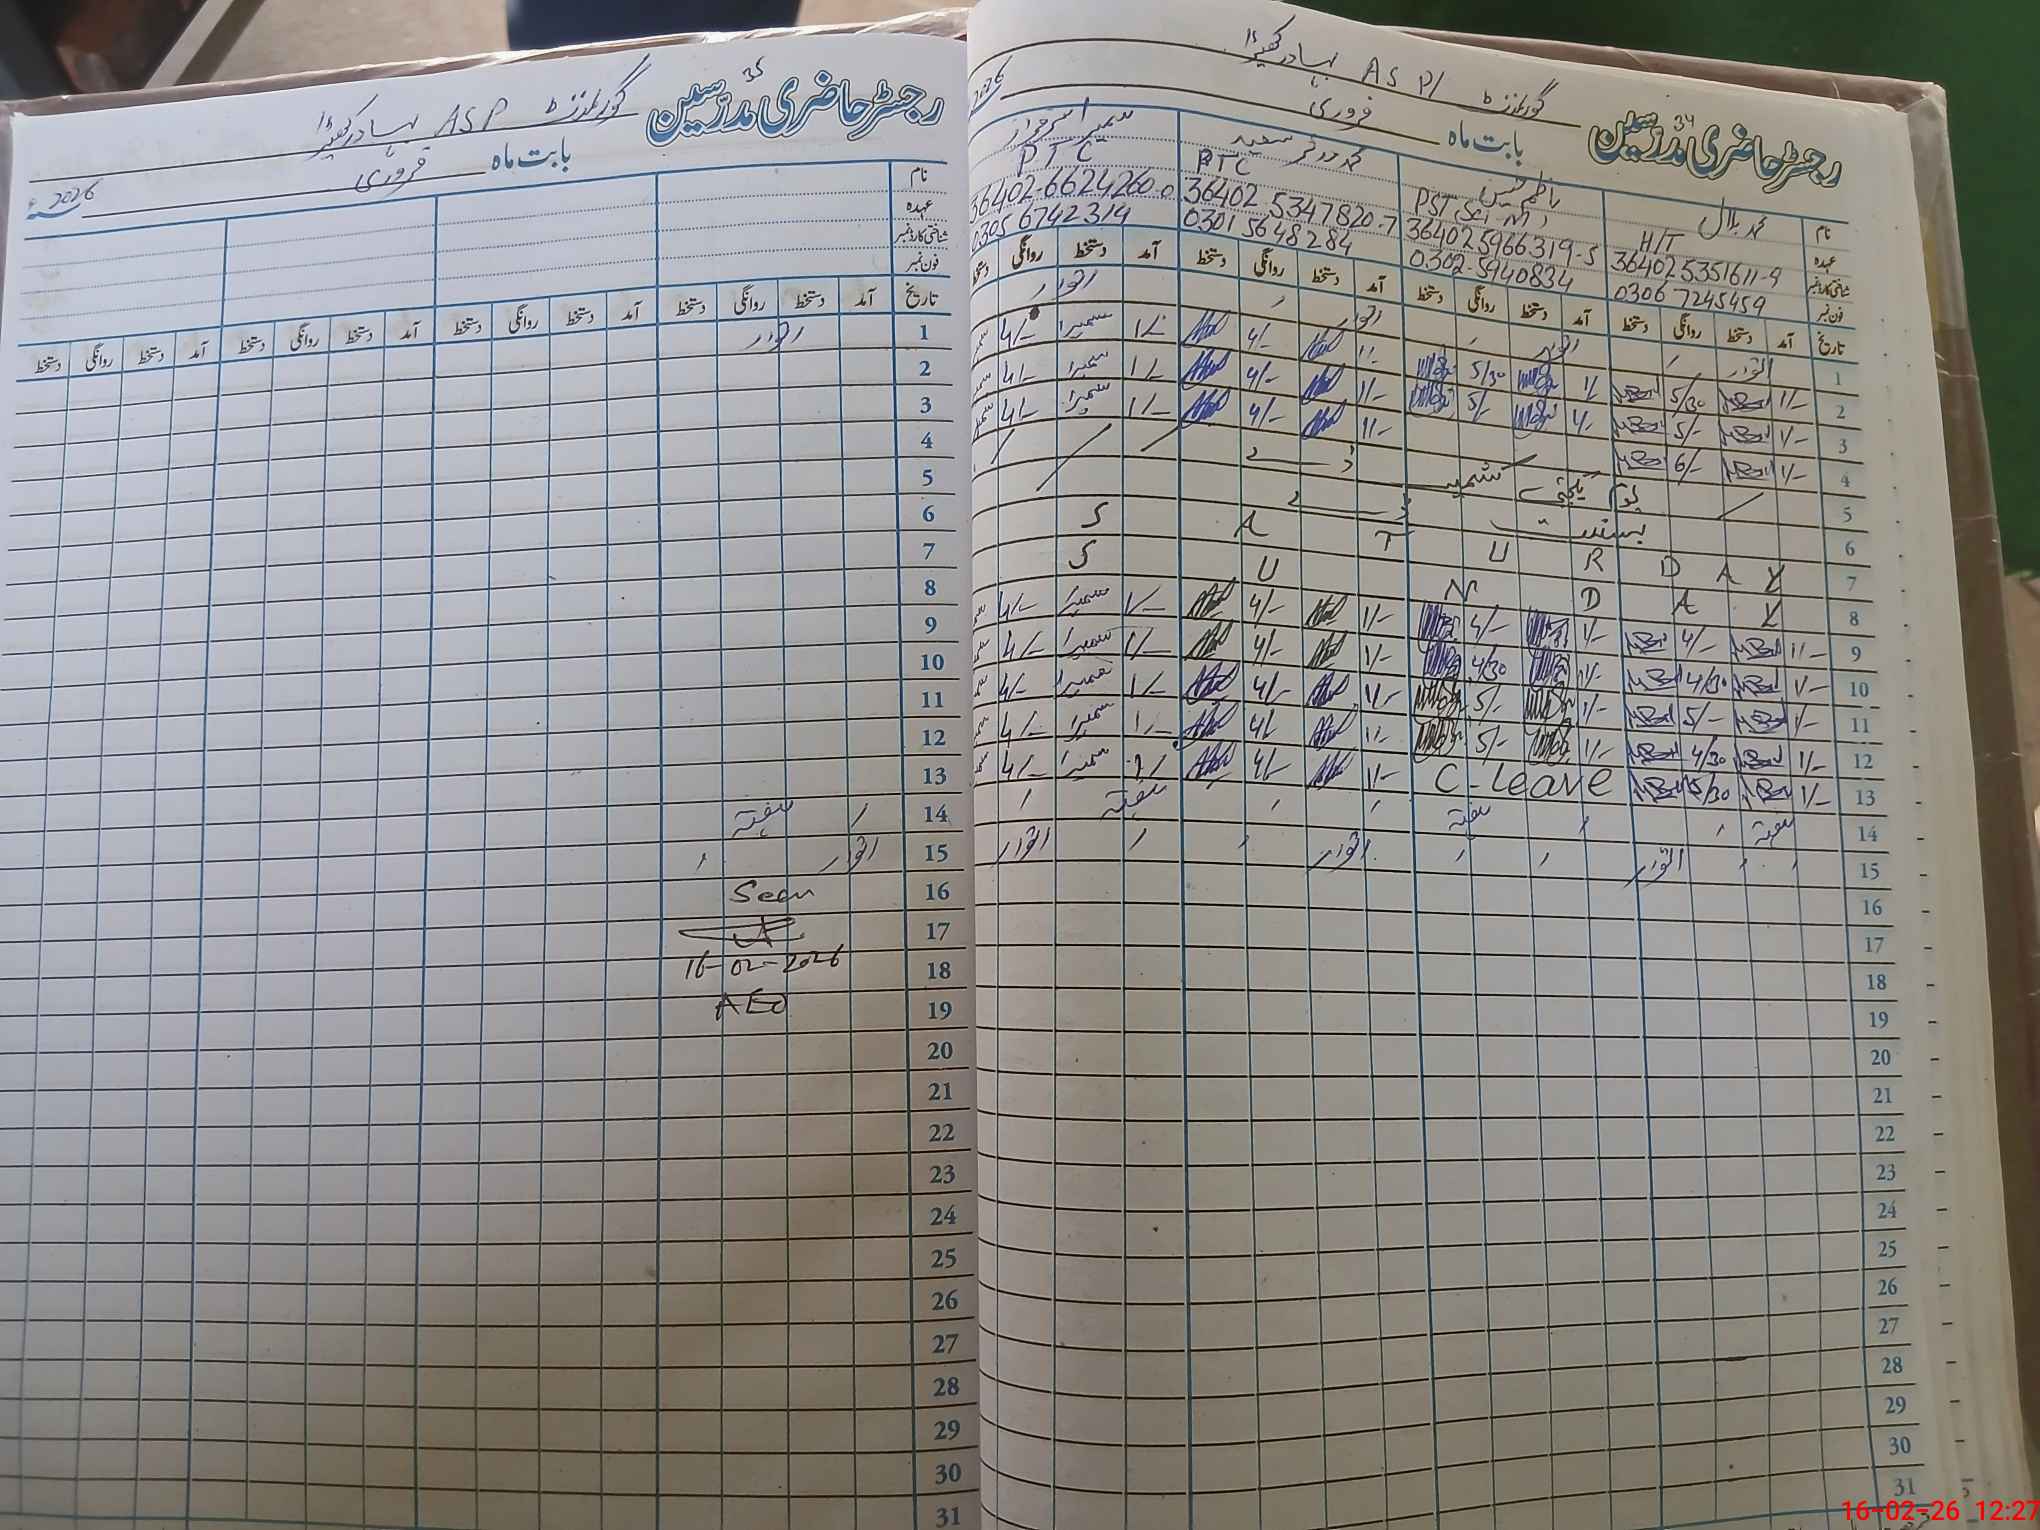 رجسٹر حاضری مدرسین 34
گورنمنٹ ASP/ بہادر کھیڑا
بابت ماہ فروری 2026
نام محمد بلال
عہدہ H/T PST (Sci, M) PTC PTC
شناختی کارڈ نمبر 36402 5351611-9 36402 5966319-5 36402 5347820-7 36402-6624260-0
فون نمبر 0306 7245459 0302-5940834 0301 5648284 0305 6742314
تاریخ آمد دستخط روانگی دستخط آمد دستخط روانگی دستخط آمد دستخط روانگی دستخط آمد دستخط روانگی دستخط
1 اتوار اتوار اتوار اتوار
2 1/- 5/30 1/- 5/30 1/- 4/- 1/- سمیرا 4/-
3 1/- 5/- 1/- 5/- 1/- 4/- 1/- سمیرا 4/-
4 1/- 6/- 1/- 4/- 1/- سمیرا 4/-
5 یوم یکجہتی کشمیر ڈے
6 بسنت ڈے
7 S A T U R D A Y
8 S U N D A Y
9 1/- 4/- 1/- 4/- 1/- 4/- 1/- سمیرا 4/-
10 1/- 4/30 1/- 4/30 1/- 4/- 1/- سمیرا 4/-
11 1/- 5/- 1/- 5/- 1/- 4/- 1/- سمیرا 4/-
12 1/- 4/30 1/- 5/- 1/- 4/- 1/- سمیرا 4/-
13 1/- 5/30 C-Leave 1/- 4/- 1/- سمیرا 4/-
14 ہفتہ ہفتہ ہفتہ
15 اتوار اتوار اتوار
16
17
18
19
20
21
22
23
24
25
26
27
28
29
30
31
رجسٹر حاضری مدرسین 35
گورنمنٹ ASP بہادر کھیڑا
بابت ماہ فروری 2026ء
نام
عہدہ
شناختی کارڈ نمبر
فون نمبر
تاریخ آمد دستخط روانگی دستخط آمد دستخط روانگی دستخط آمد دستخط روانگی دستخط آمد دستخط روانگی دستخط
1 اتوار
2
3
4
5
6
7
8
9
10
11
12
13
14 ہفتہ
15 اتوار
16 Seen
17
18 16-02-2026
19 AEO
20
21
22
23
24
25
26
27
28
29
30
31
16-02-26 12:27